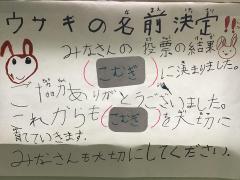 ウサギの名前決定!!
みなさんの投票の結果
(こむぎ)に決まりました。
ご協力ありがとうございました。
これからも(こむぎ)を大切に
育てていきます。
みなさんも大切にしてください。